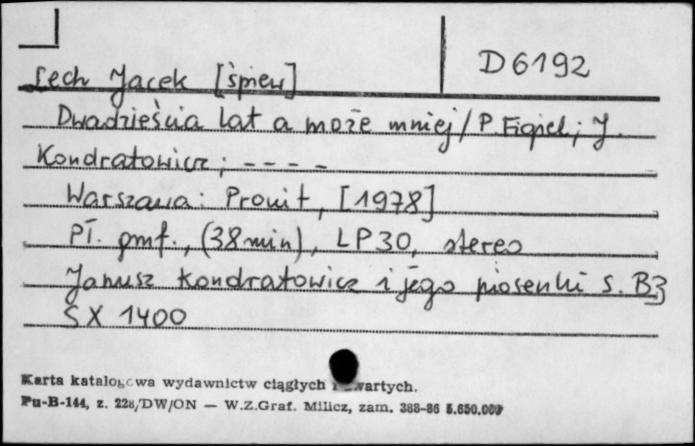 D6192
Lech Jacek [śpiew]
Dwadzieścia lat a może mniej / P. Figiel; J.
Kondratowicz; - - - -
Warszawa: Pronit, [1978]
Pł. gmf., (38 min), LP30, stereo
Janusz Kondratowicz i jego piosenki s. B3
SX 1400
Karta katalogowa wydawnictw ciągłych i zwartych.
Pu-B-144, z. 228/DW/ON — W.Z.Graf. Milicz, zam. 388-86 5.650.000